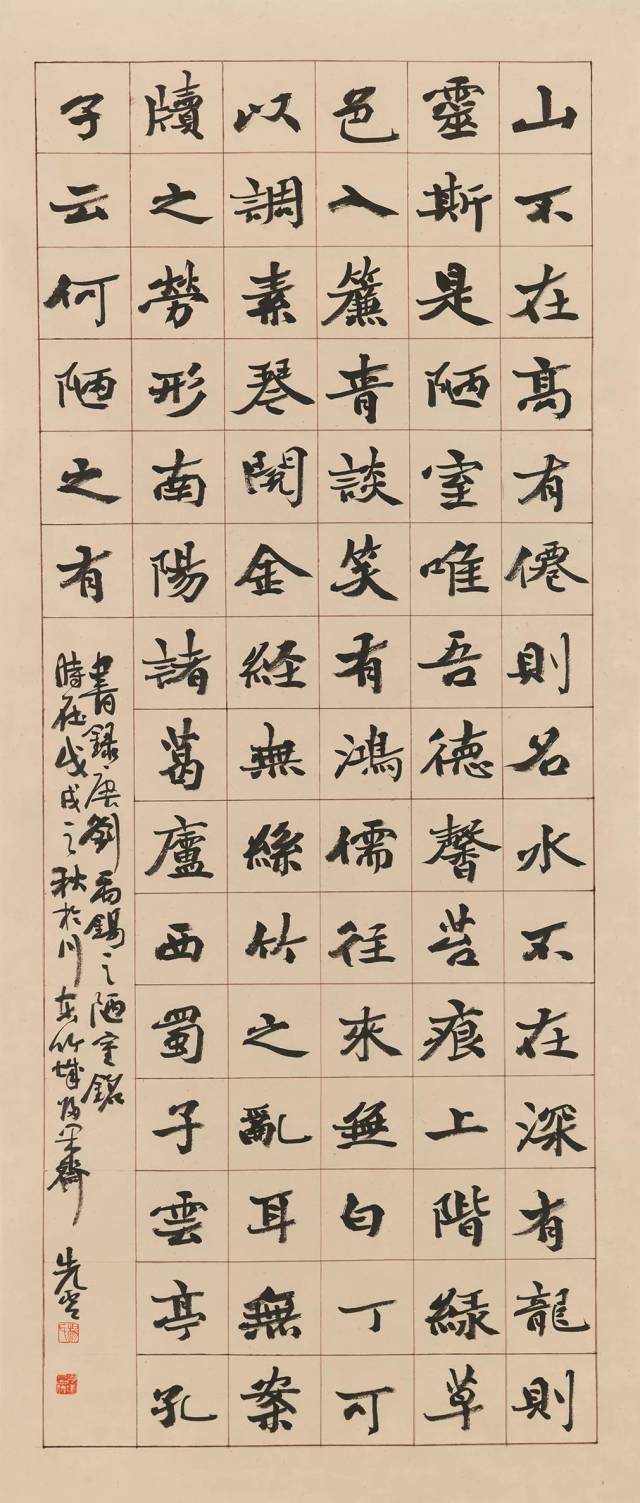 山不在高有僊則名水不在深有龍則
靈斯是陋室唯吾德馨苔痕上階緑草
色入簾青談笑有鴻儒往來無白丁可
以調素琴閱金経無絲竹之亂耳無案
牘之勞形南陽諸葛廬西蜀子雲亭孔
子云何陋之有
書録唐劉禹錫之陋室銘
時在戊戌之秋於川東竹城